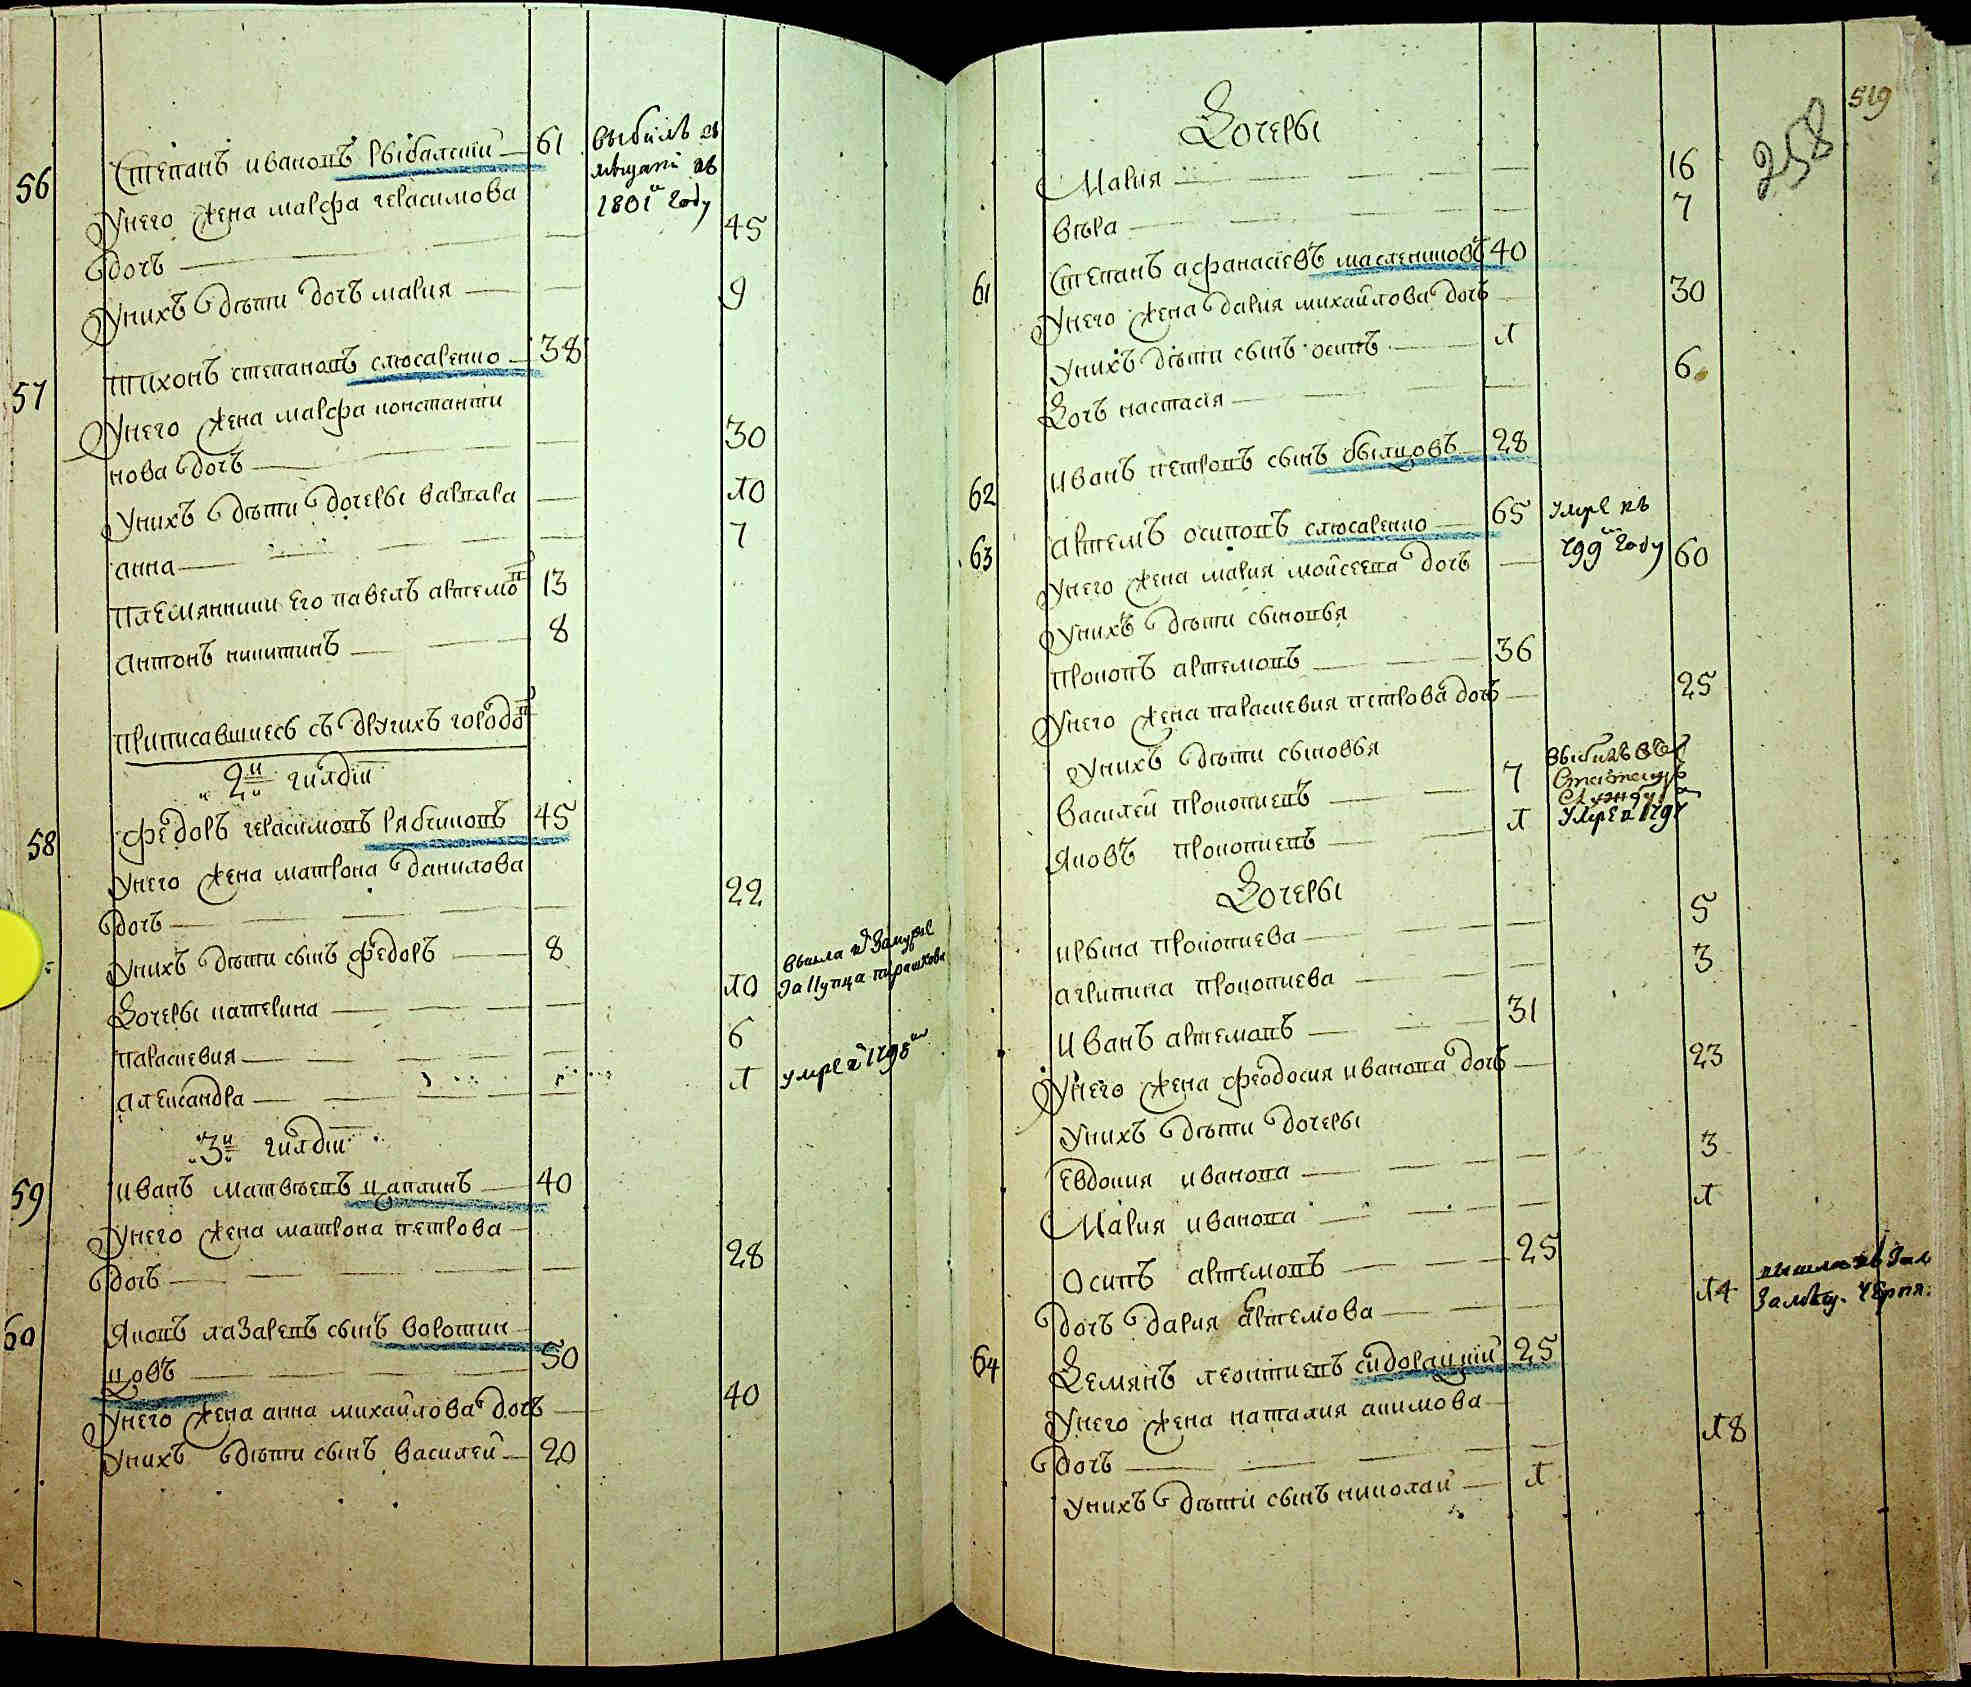 56 Степанъ ивановъ рыбалский 61 выбылъ въ
мещани въ
1801м году
У него жена марфа герасимова
дочь 45
У нихъ дѣти дочь мария 9
57 Тихонъ степановъ слюсаренко 38
У него жена марфа константи
нова дочь 30
У нихъ дѣти дочеры варвара 10
анна 7
племянники его павелъ артемов 13
антонъ никитинъ 8
приписавшиесь съ другихъ городов
2й гилдіи
58 Федоръ герасимовъ рябчиковъ 45
У него жена матрона данилова
дочь 22
У нихъ дѣти сынъ федоръ 8
Дочеры катерина 10 вышла в замуже
за купца
параскевия 6
александра 1 умре в 1798м
3й гилдіи
59 иванъ матвѣевъ цаплинъ 40
У него жена матрона петрова
дочь 28
60 Яковъ лазаревъ сынъ воротни
ковъ 50
У него жена анна михайлова дочь 40
У нихъ дѣти сынъ василей 20
519
258
Дочеры
Мария 16
вѣра 7
61 Степанъ афанасіевъ маслениковъ 40
У него жена дария михайлова дочь 30
У нихъ дѣти сынъ осипъ 1
Дочь настасія 6
62 иванъ петровъ сынъ былцовъ 28
63 артемъ осиповъ слюсаренко 65 умре въ
799м году
У него жена мария мойсеева дочь 60
У нихъ дѣти сыновья
прокопъ артемовъ 36
У него жена параскевия петрова дочь 25
У нихъ дѣти сыновья
василей прокопиевъ 7 выбылъ
службу
Яковъ прокопиевъ 1 умре в 1797
Дочеры
ирына прокопиева 5
агрипина прокопиева 3
иванъ артемовъ 31
У него жена феодосия иванова дочь 23
У нихъ дѣти дочеры
Евдокия иванова 3
Мария иванова 1
Осипъ артемовъ 25
дочь дария артемова 14 вышла в зам
за мѣщ. черня.
64 Демянъ леонтиевъ сидорацкий 25
У него жена наталия акимова
дочь 18
У нихъ дѣти сынъ николай 1